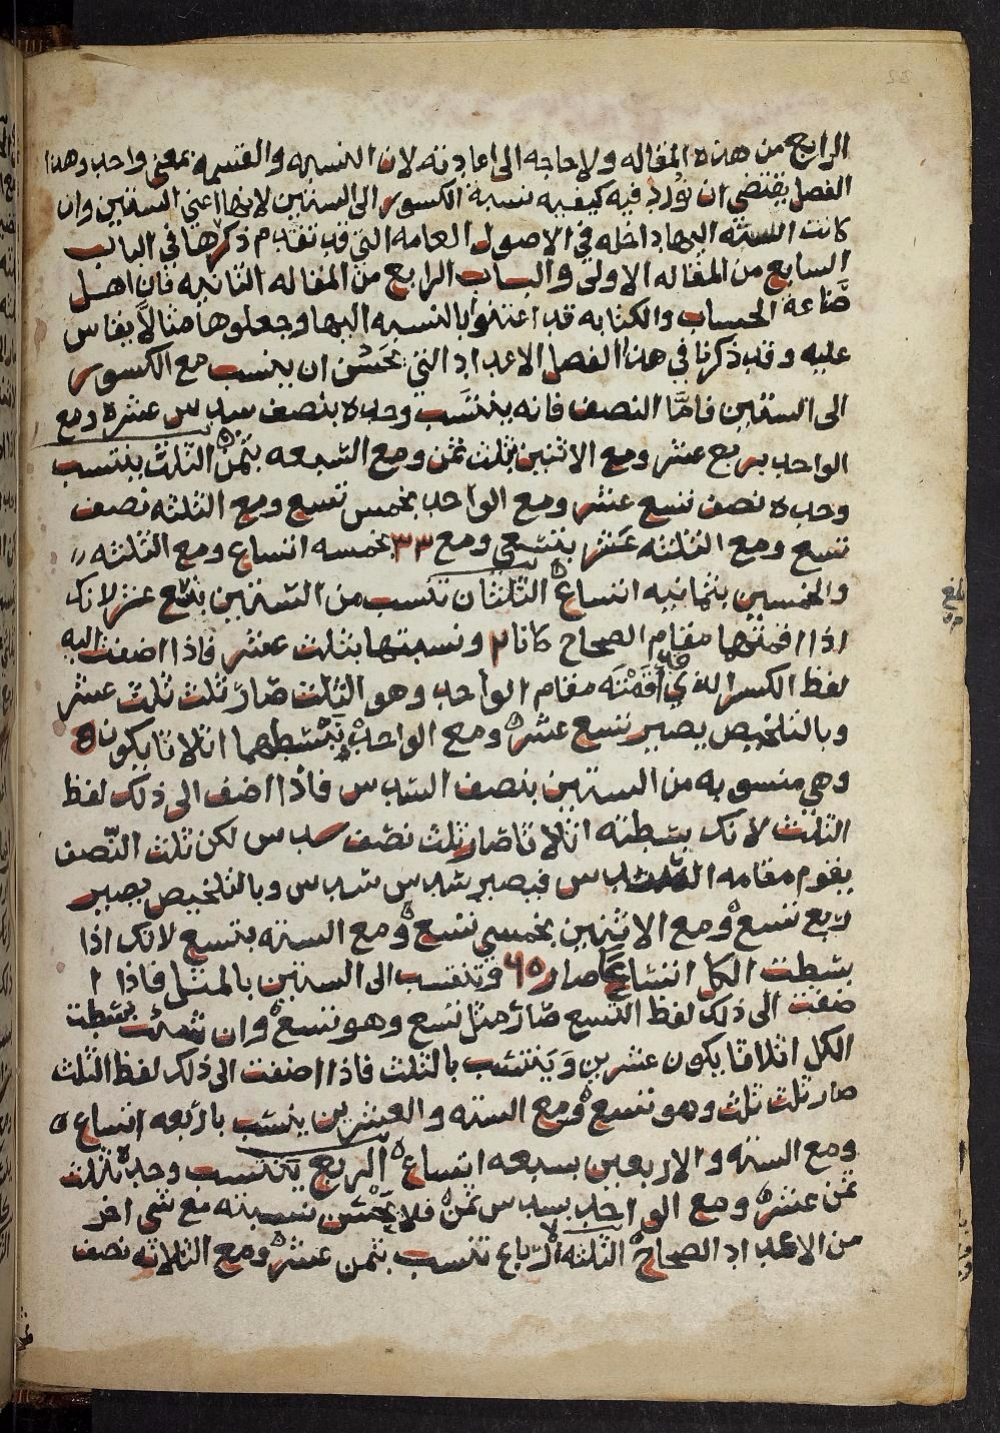 الرابع من هذه المقاله ولا حاجه الى اعادته لان النسبه والقسمه بمعنى واحد وهذا
الفصل يقتضي ان نورد فيه كيفيه نسبة الكسور الى الستين لانها اعني الستين وان
كانت النسبه اليها داخله في الاصول العامه التي قد تقدم ذكرها في الباب
السابع من المقاله الاولى والباب الرابع من المقاله الثانيه فان اهل
صناعة الحساب والكتابه قد اعتنوا بالنسبه اليها وجعلوها مثالا يقاس
عليه وقد ذكرنا في هذا الفصل الاعداد التي يحسن ان ينسب مع الكسور
الى الستين فاما النصف فانه ينتسب وحده بنصف سدس عشره ومع
الواحد بربع عشر ومع الاثنين بثلث ثمن ومع السبعه بثمن الثلث ينتسب
وحده نصف تسع عشر ومع الواحد بخمس تسع ومع الثلثه نصف
تسع ومع الثلثه عشر بتسعي ومع ٣٣ بخمسه اتساع ومع الثلثه
والخمسين بثمانيه اتساع الثلثان تنسب من الستين بتسع عشر لانك
اذا اقمتهما مقام الصحاح كانا ٢ ونسبتهما بثلث عشر فاذا اضفت اليه
لفظ الكسر الذي اقمته مقام الواحد وهو الثلث صار ثلث ثلث عشر
وبالتلخيص يصير تسع عشر ومع الواحد تبسطهما اثلاثا يكون ٥
وهي منسوبه من الستين بنصف السدس فاذا اضف الى ذلك لفظ
الثلث لانك بسطته اثلاثا صار ثلث نصف سدس لكن ثلث النصف
يقوم مقامه السدس فيصير سدس سدس وبالتلخيص يصير
ربع تسع ومع الاثنين بخمسي تسع ومع السته بتسع لانك اذا
بسطت الكل اتساعا صار ٦٥ وتنتسب الى الستين بالمثل فاذا ا
ضفت الى ذلك لفظ التسع صار مثل تسع وهو تسع وان شئت بسطت
الكل اثلاثا يكون عشرين وينتسب بالثلث فاذا اضفت الى ذلك لفظ الثلث
صار ثلث ثلث وهو تسع ومع السته والعشرين ينسب باربعه اتساع
ومع السته والاربعين بسبعه اتساع الربع ينتسب وحده بثلث
ثمن عشر ومع الواحد بسدس ثمن فلا يحسن نسبته مع شي اخر
من الاعداد الصحاح الثلثه ارباع تنسب بثمن عشر ومع الثلاثه نصف